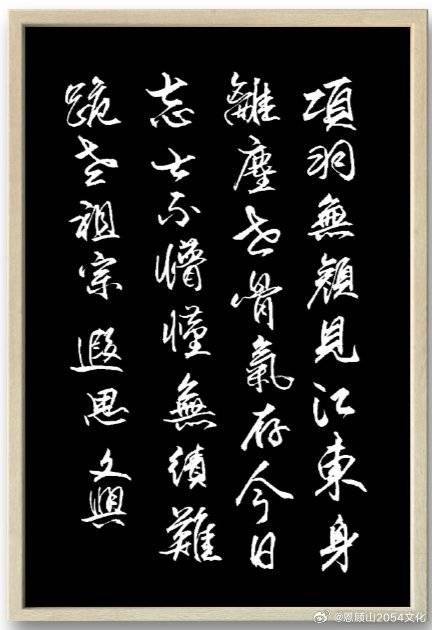 項羽無顔見江東身
離塵世骨氣存今日
志士不懵懂無績難
跪老祖宗 遐思 文興
@恩顾山2054文化